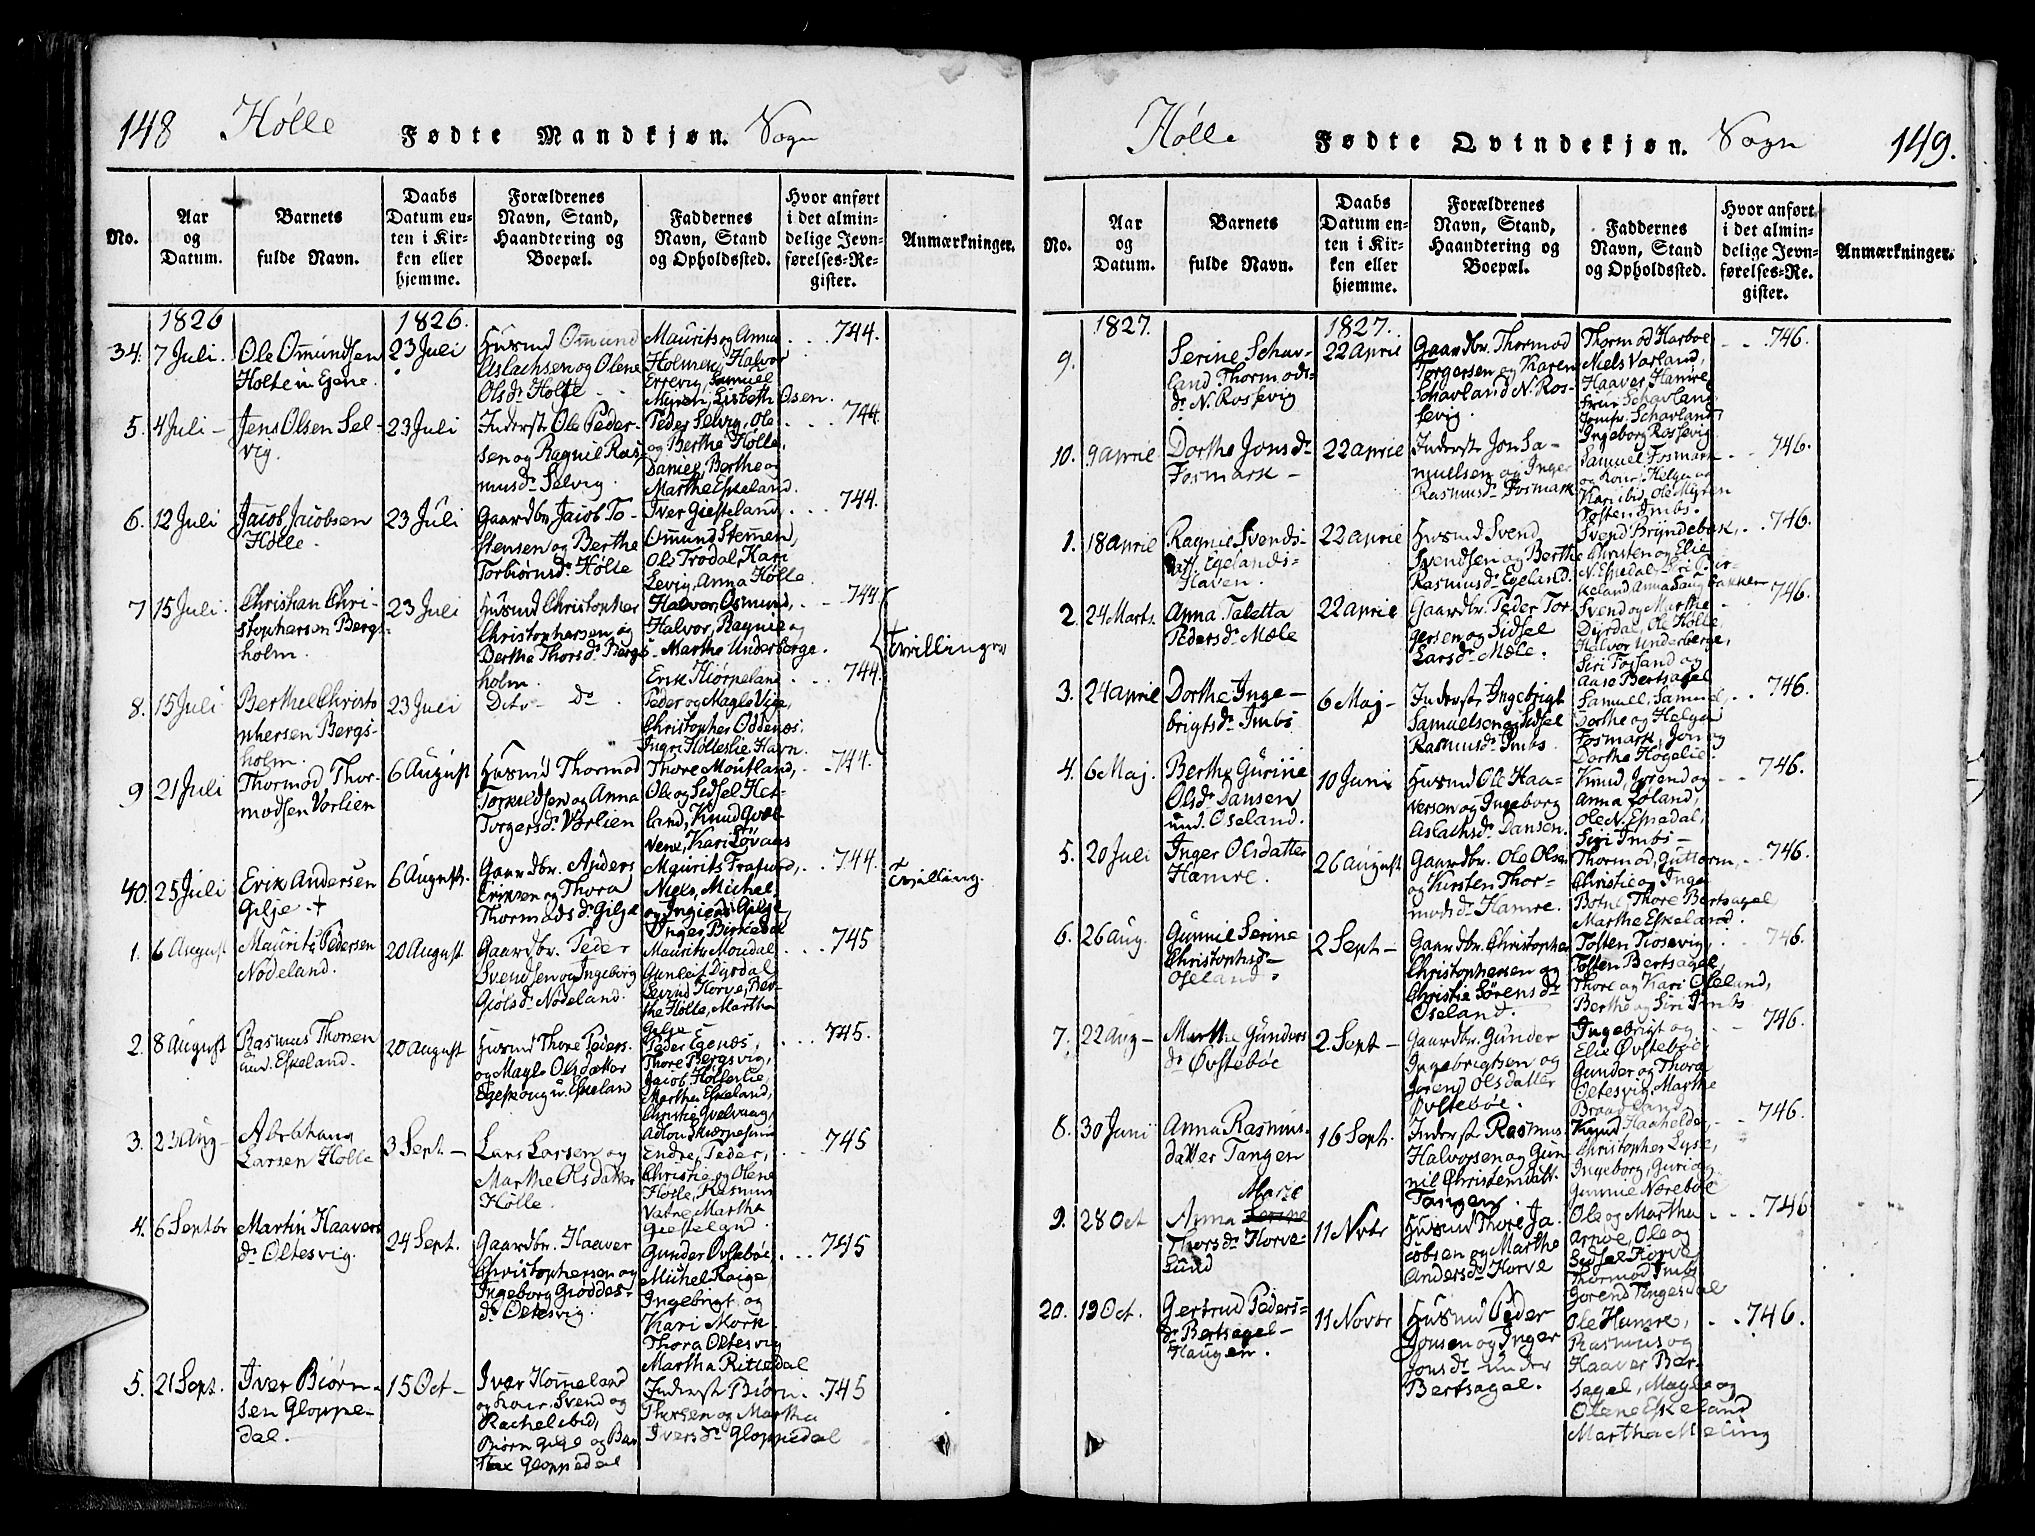 148 Hölle Fødte Mandkjøn. Sogn
No.
Aar
og
Datum.
Barnets
fulde Navn.
Daabs
Datum en-
ten i Kir-
ken eller
hjemme.
Forældrenes
Navn, Stand,
Haandtering og
Boepæl.
Faddernes
Navn, Stand
og Opholdssted.
Hvor anført
i det almin-
delige Jevn-
førelses-Re-
gister.
Anmærkninger.
1826 1826.
34. 7 Juli.
Ole Omundsen
Holte u. Egene.
23 Juli
Husmd Omund
Aslachsen og Olene
Olsdr Holte
Maurits og Anna
Holmen, Halvor
Errevig, Samuel
Myren, Lisbeth Osen.
744.
5. 4 Juli
Jens Olsen Sel-
vig.
23 Juli
Inderst Ole Peder-
sen og Ragnil Ras-
musdr Selvig.
Peder Selvig, Ole
og Berthe Hölle,
Daniel, Berthe og
Marthe Eskeland.
744.
6. 12 Juli
Jacob Jacobsen
Hölle.
23 Juli
Gaardbr Jacob To-
stensen og Berthe
Torbiørnsdr Hölle
Iver Gieseland,
Omund Stemen,
Ole Trodal, Kari
Levig, Anna Hølle.
744.
7 15 Juli.
Christian Chri-
stophersen Bergs-
holm.
23 Juli
Husmd Christopher
Christophersen og
Berthe Thorsdr Bergs-
holm.
Halvor, Osmund,
Halvor, Ragnie og
Marthe Underberge.
Erik Kiørpeland
744
Tvillinger
8. 15 Juli
Berthel Christo
phersen Bergs-
holm.
23 Juli
Dito dr
Peder og Magle Vige,
Christopher Oddenæs,
Ingri Hölleslie Havn.
744.
9 21 Juli
Thormod Thor-
modsen Vorlien
6 August
Husmd Thormod
Torkildsen og Anna
Torgersdr Vorlien
Thore Moutland,
Ole og Sidsel Het-
land, Knud
vene, Kari Løvaas
744.
40. 25 Juli
Erik Andersen
Gilje. +
6 August.
Gaardbr. Anders
Eriksen og Thora
Thormodsdr Gilje
Maurits Frafiord,
Niels, Michel
og Gilje
Inger Birkedal
744.
Tvilling.
1. 6 August
Maurits Pedersen
Nodeland.
20 August
Gaardbr. Peder
Svendsen og Ingeborg
Giølsdr Nodeland.
Maurits Moudal
Gunleif Dyrdal,
Eivind Horve, Ber-
the Hölle, Martha
Gilje
745
2. 8 August
Rasmus Thorsen
und. Eskeland.
20 August
Husmd Thore Peders.
og Magle Olsdatter
u. Eskeland
Peder Egenæs,
Thore Bergsvig,
Jacob Hölleslie
Martha Eskeland,
Christie Qvelvaag,
745.
3. Aug
Abrahang
Larsen Hölle
3 Sept.
Lars Larsen og
Marthe Olsdatter
Hölle.
Endre, Peder,
Christie og Olene
Hölle, Rasmus
Vatne, Martha
Gieseland.
745
4. 6 Septbr
Martin Haavers
dr Oltesvig.
24 Sept.
Gaardbr. Haaver
Christophersen og
Ingeborg Gioddes-
dr Oltesvig.
Gunder Øvstebøe,
Michel Raige
Ingebrigt og
Kari Mork
Thora Oltesvig
Martha Rittedal
745
5. 21 Sept.
Iver Biørn-
sen Gloppe-
dal.
15 Oct
Ivar Homeland
og Svend og
Rachel ibid,
Biørn Gilje og
Gloppedal
Inderst Biørn
Thorsen og Martha
Iversdr Gloppedal
745

Hölle Fødte Qvindekjøn. Sogn 149.
No.
Aar
og
Datum.
Barnets
fulde Navn.
Daabs
Datum en-
ten i Kir-
ken eller
hjemme.
Forældrenes
Navn, Stand,
Haandtering og
Boepæl.
Faddernes
Navn, Stand
og Opholdssted.
Hvor anført
i det almin-
delige Jevn-
førelses-Re-
gister.
Anmærkninger.
1827. 1827.
9.
Serine Schav-
land Thormods-
dr N. Rossevig
22 April
Gaardbr. Thormod
Torgersen og Karen
Schavland N. Ros-
sevig.
Thormod Harboe
Niels Vorland,
Haaver Hamre,
Frue Schavland,
Jomfr. Schavland,
Ingeborg Rossevig
746.
10. 9 April
Dorthe Jonsdr
Fosmark
22 April
Inderst Jon Sa-
muelsen og Inger
Rasmusdr Fosmark
Samuel Fosmark
og Kone, Helga og
Kari ibid, Ole Myren
Tosten Imbs.
746.
1. 18 April
Ragnil Svends-
dat. Egelands-
Haven.
22 April
Husmd Svend
Svendsen og Berthe
Rasmusdr Egeland.
Svend Bryndeboe,
Christen og Elie
N. Espedal,
keland Anna
746.
2 24 Marts.
Anna Taletta
Pedersdr Mæle
22 April
Gaardbr. Peder Tor-
gersen og Sidsel
Larsdr Mæle.
Svend og Marthe
Dyrdal, Ole Hölle,
Halvor Underberge,
Siri Forsand og
Aase Bertsagel
746.
3. 24 April
Dorthe Inge-
brigtsdr Imbs
6 Maj
Inderst Ingebrigt
Samuelsen og Sidsel
Rasmusdr Imbs.
Samuel, Samuel,
Dorthe og Helga
Fosmark, Jon og
Dorthe Høgelie.
746.
4. 6 Maj.
Berthe Gurine
Olsdr Dansen
und. Oseland.
10 Juni
Husmd Ole Haa-
versen og Ingeborg
Aslachsdr Dansen.
Knud, Jorend og
Anna Løland,
Ole N. Espedal,
Siri Imbs
746.
5. 20 Juli
Inger Olsdatter
Hamre.
26 August
Gaardbr. Ole Olsen
og Kirsten Thor-
modsdr Hamre.
Thormod, Guttorm,
Christie og Inger
Botne, Thore Bertsagel,
Marthe Eskeland.
746.
6. 26 Aug.
Gunnil Serine
Christophsdr
Oseland.
2 Sept
Gaardbr. Christopher
Christophersen og
Christie Sørensdr
Oseland.
Tosten Tiosevig,
Tosten Bertsagel,
Thore og Kari Oseland,
Berthe og Siri Imbs
746.
7. 22 Aug
Marthe Gunders
dr Øvstebøe
2. Sept
Gaardbr. Gunder
Ingebrigtsen og
Jorend Olsdatter
Øvstebøe.
Ingebrigt og
Elie Øvstebøe,
Gunder og Thora
Oltesvig, Marthe
Braadeland
746.
8. 30 Juni
Anna Rasmus-
datter Tangen
16 Sept.
Inderst Rasmus
Halvorsen og Gun-
nil Christensdatt.
Tangen.
Knud Haahelder,
Christopher Lyse,
Ingeborg, Guri og
Gunnie Nærebøe
746.
9. 28 Oct
Marte
Anna Serine
Thorsdr Horve-
Lund
11 Novbr
Husmd Thore Ja-
cobsen og Marthe
Andersdr Horve
Ole og Martha
Arnøe, Ole og
Sidsel Horve
Thormod Imbs
Jorend Tingesdal
746
20. 19 Oct.
Gertrud Peders-
dr Bertsagel-
Haugen.
11 Novbr
Husmd Peder
Jonsen og Inger
Jonsdr under
Bertsagel.
Ole Hamre,
Rasmus og
Haaver Ber-
sagel, Magle og
Olene Eskeland
Martha Meling
746.